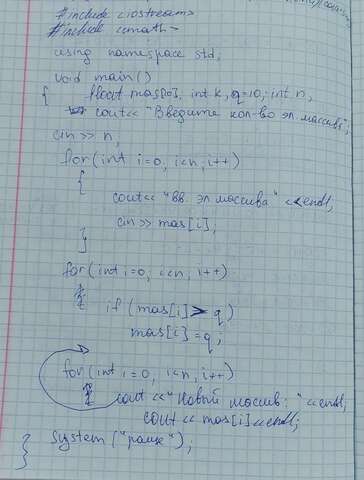 #include <iostream>
#include <cmath>
using namespace std;
void main()
{ float mas[10], int k, q=10; int n,
cout<< "Введите кол-во эл массива";
cin >> n,
for (int i=0, i<n, i++)
{
cout<< "вв эл массива" <<endl,
cin>> mas[i],
}
for (int i=0, i<n, i++)
{
if (mas[i] > q)
mas[i] = q;
for (int i=0, i<n, i++)
{ cout <<"Новый массив: "<<endl;
cout << mas[i]<<endl;
} system ("pause");